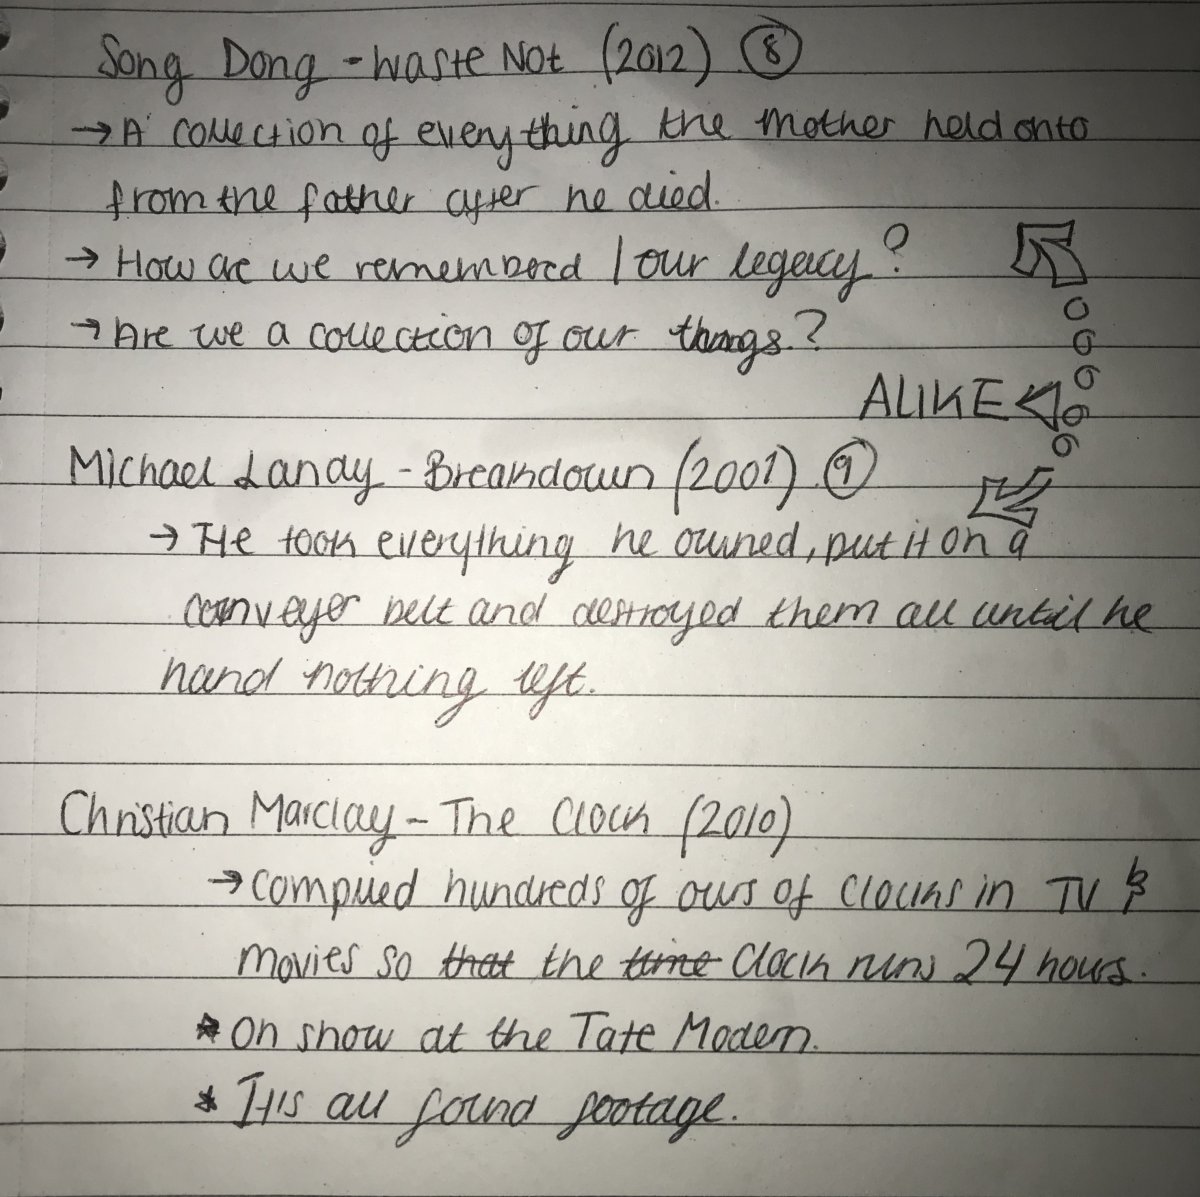 Song Dong - Waste Not (2012) 8
→ A collection of everything the mother held onto
from the father after he died.
→ How are we remembered / our legacy?
→ Are we a collection of our things?
ALIKE
Michael Landy - Breakdown (2001) 9
→ He took everything he owned, put it on a
conveyer belt and destroyed them all until he
hand nothing left.
Christian Marclay - The Clock (2010)
→ Compiled hundreds of ours of clocks in TV &
movies so that the time clock runs 24 hours.
* On show at the Tate Modern.
* Its all found footage.